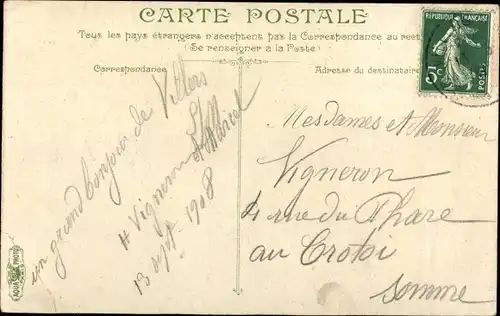 CARTE POSTALE
Tous les pays étrangers n'acceptent pas la Correspondance au recto
(Se renseigner à la Poste)
Correspondance
Adresse du destinataire
RÉPUBLIQUE FRANÇAISE
5c
POSTES
un grand bonjour de Villers
H Vigneron
13 sept. 1908
Mesdames et Monsieur
Vigneron
4 rue du Phare
au Crotoi
Somme
AQUA PHOTO